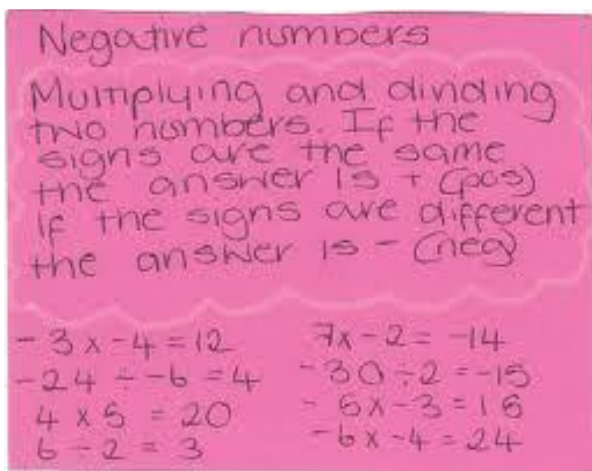 Negative numbers
Multiplying and dinding
two numbers. If the
signs are the same
the answer is + (pos)
if the signs are different
the answer is - (neg)
-3 x -4 = 12
-24 ÷ -6 = 4
4 x 5 = 20
6 ÷ 2 = 3
7x - 2 = -14
-30 ÷ 2 = -15
-5x - 3 = 15
-6x -4 = 24